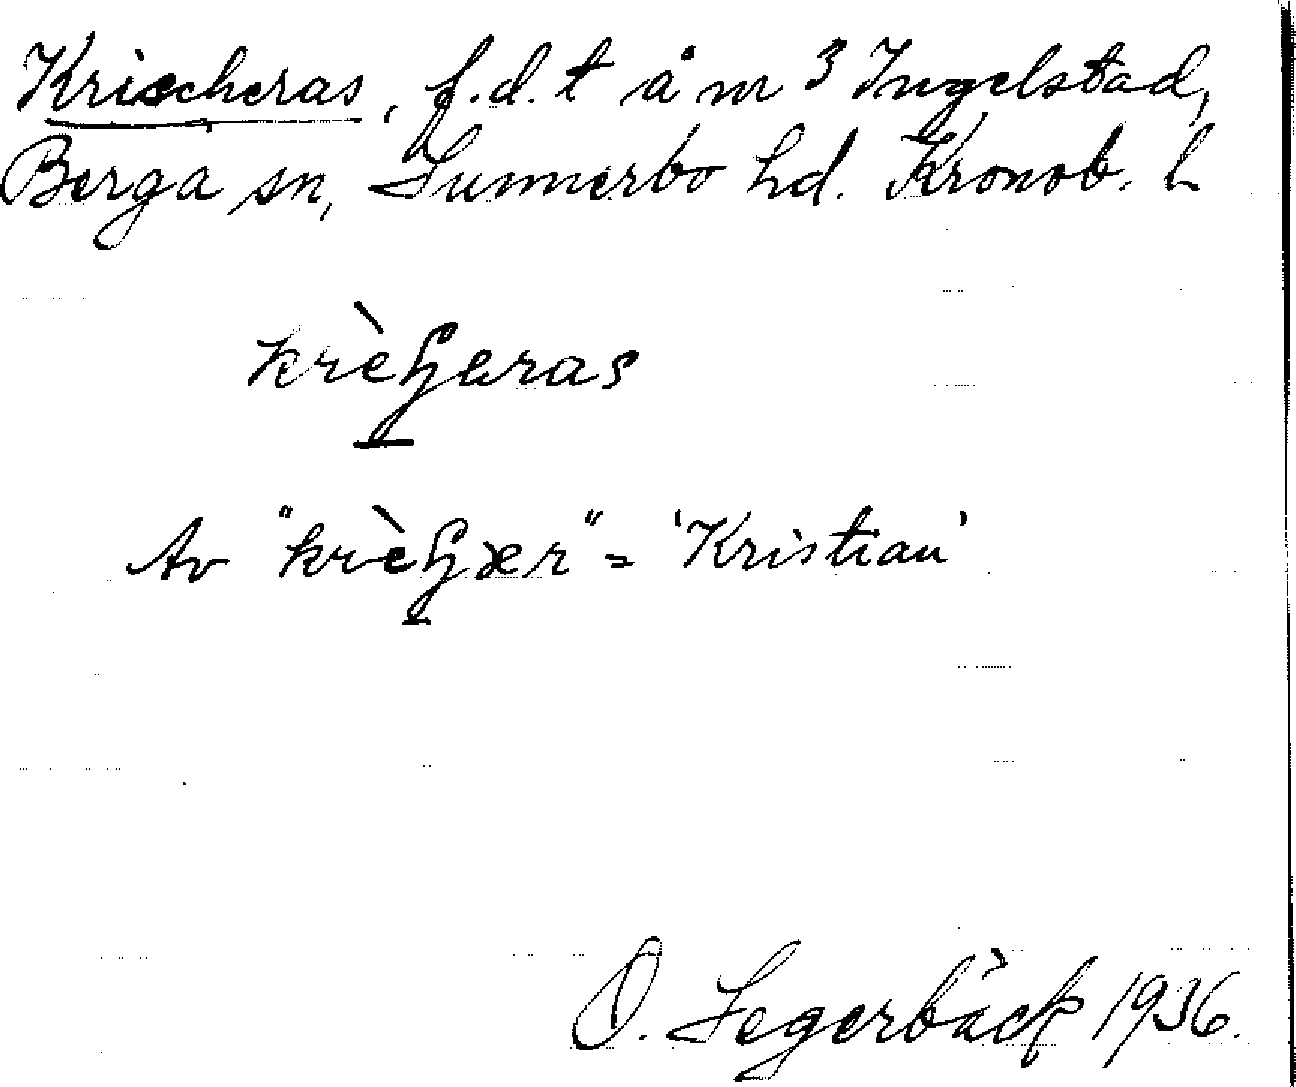 Krischeras, f.d. t å nr 3 Ingelstad,
Berga sn, Sunnerbo hd. Kronob. l
Av = 'Kristian'
O. Segerbäck 1936.